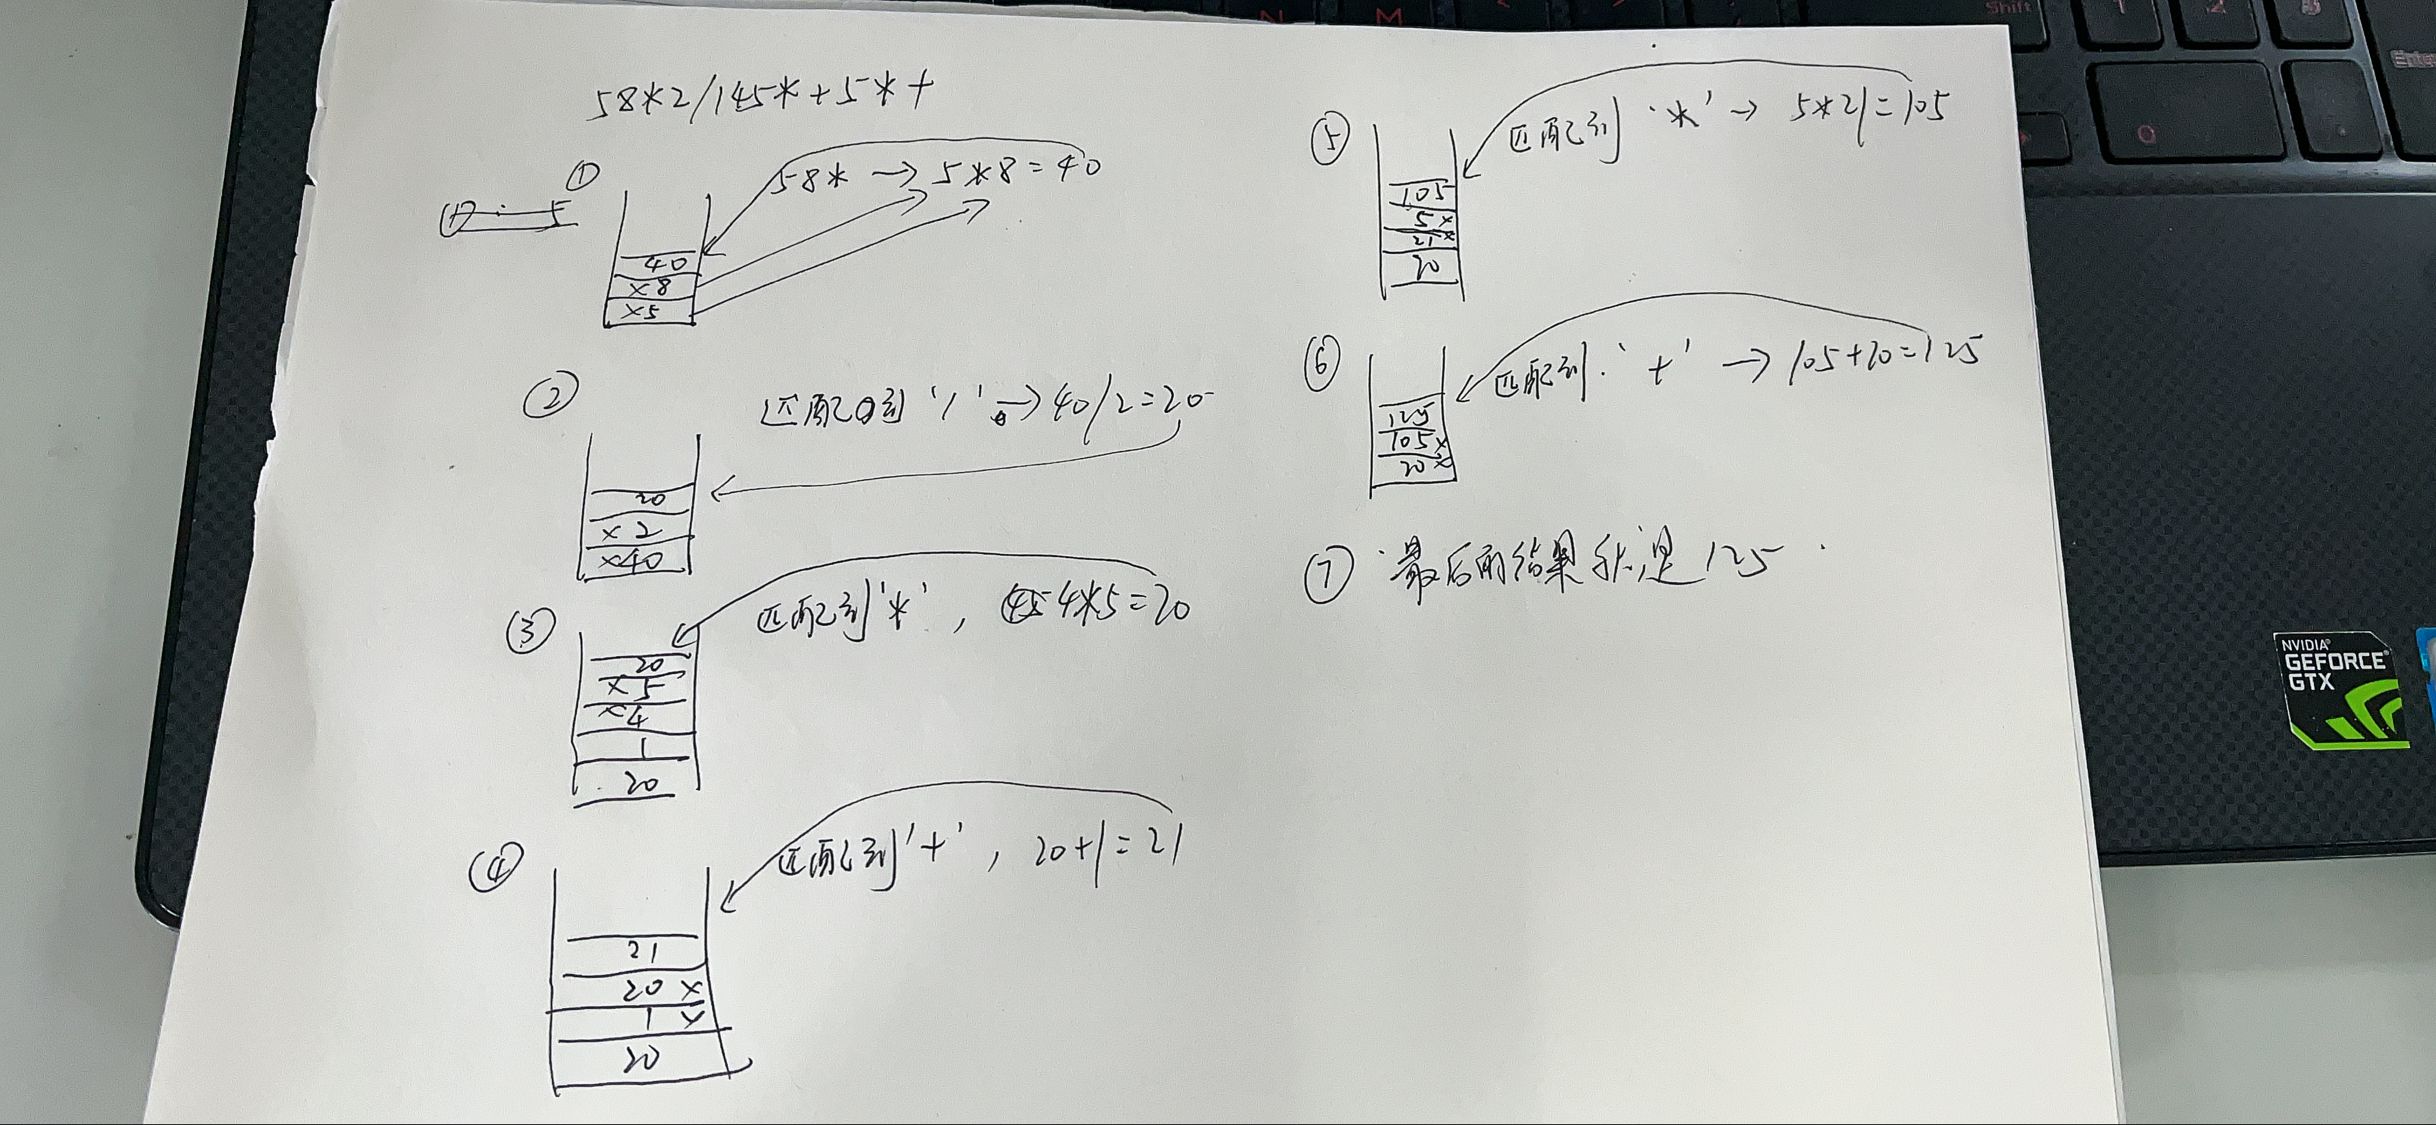 58*2/145*+5*+
①
58* → 5*8=40
40
×8
×5
②
匹配到 '/' → 40/2=20
20
×2
×40
③
匹配到 '*' , 4*5=20
20
×5
×4
1
20
④
匹配到 '+' , 20+1=21
21
20 ×
1 ×
20
⑤
匹配到 '*' → 5*21=105
105
5 ×
21 ×
20
⑥
匹配到 '+' → 105+20=125
125
105 ×
20 ×
⑦ 最后的结果就是 125
N M
Shift
1 2 3
Enter
0
NVIDIA®
GEFORCE®
GTX